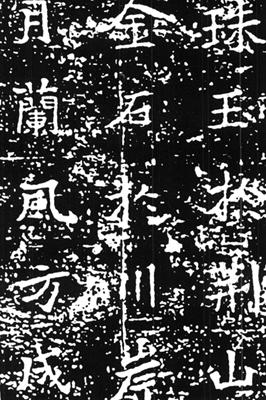 珠玉於荆山
金石於川岸
月蘭風方成